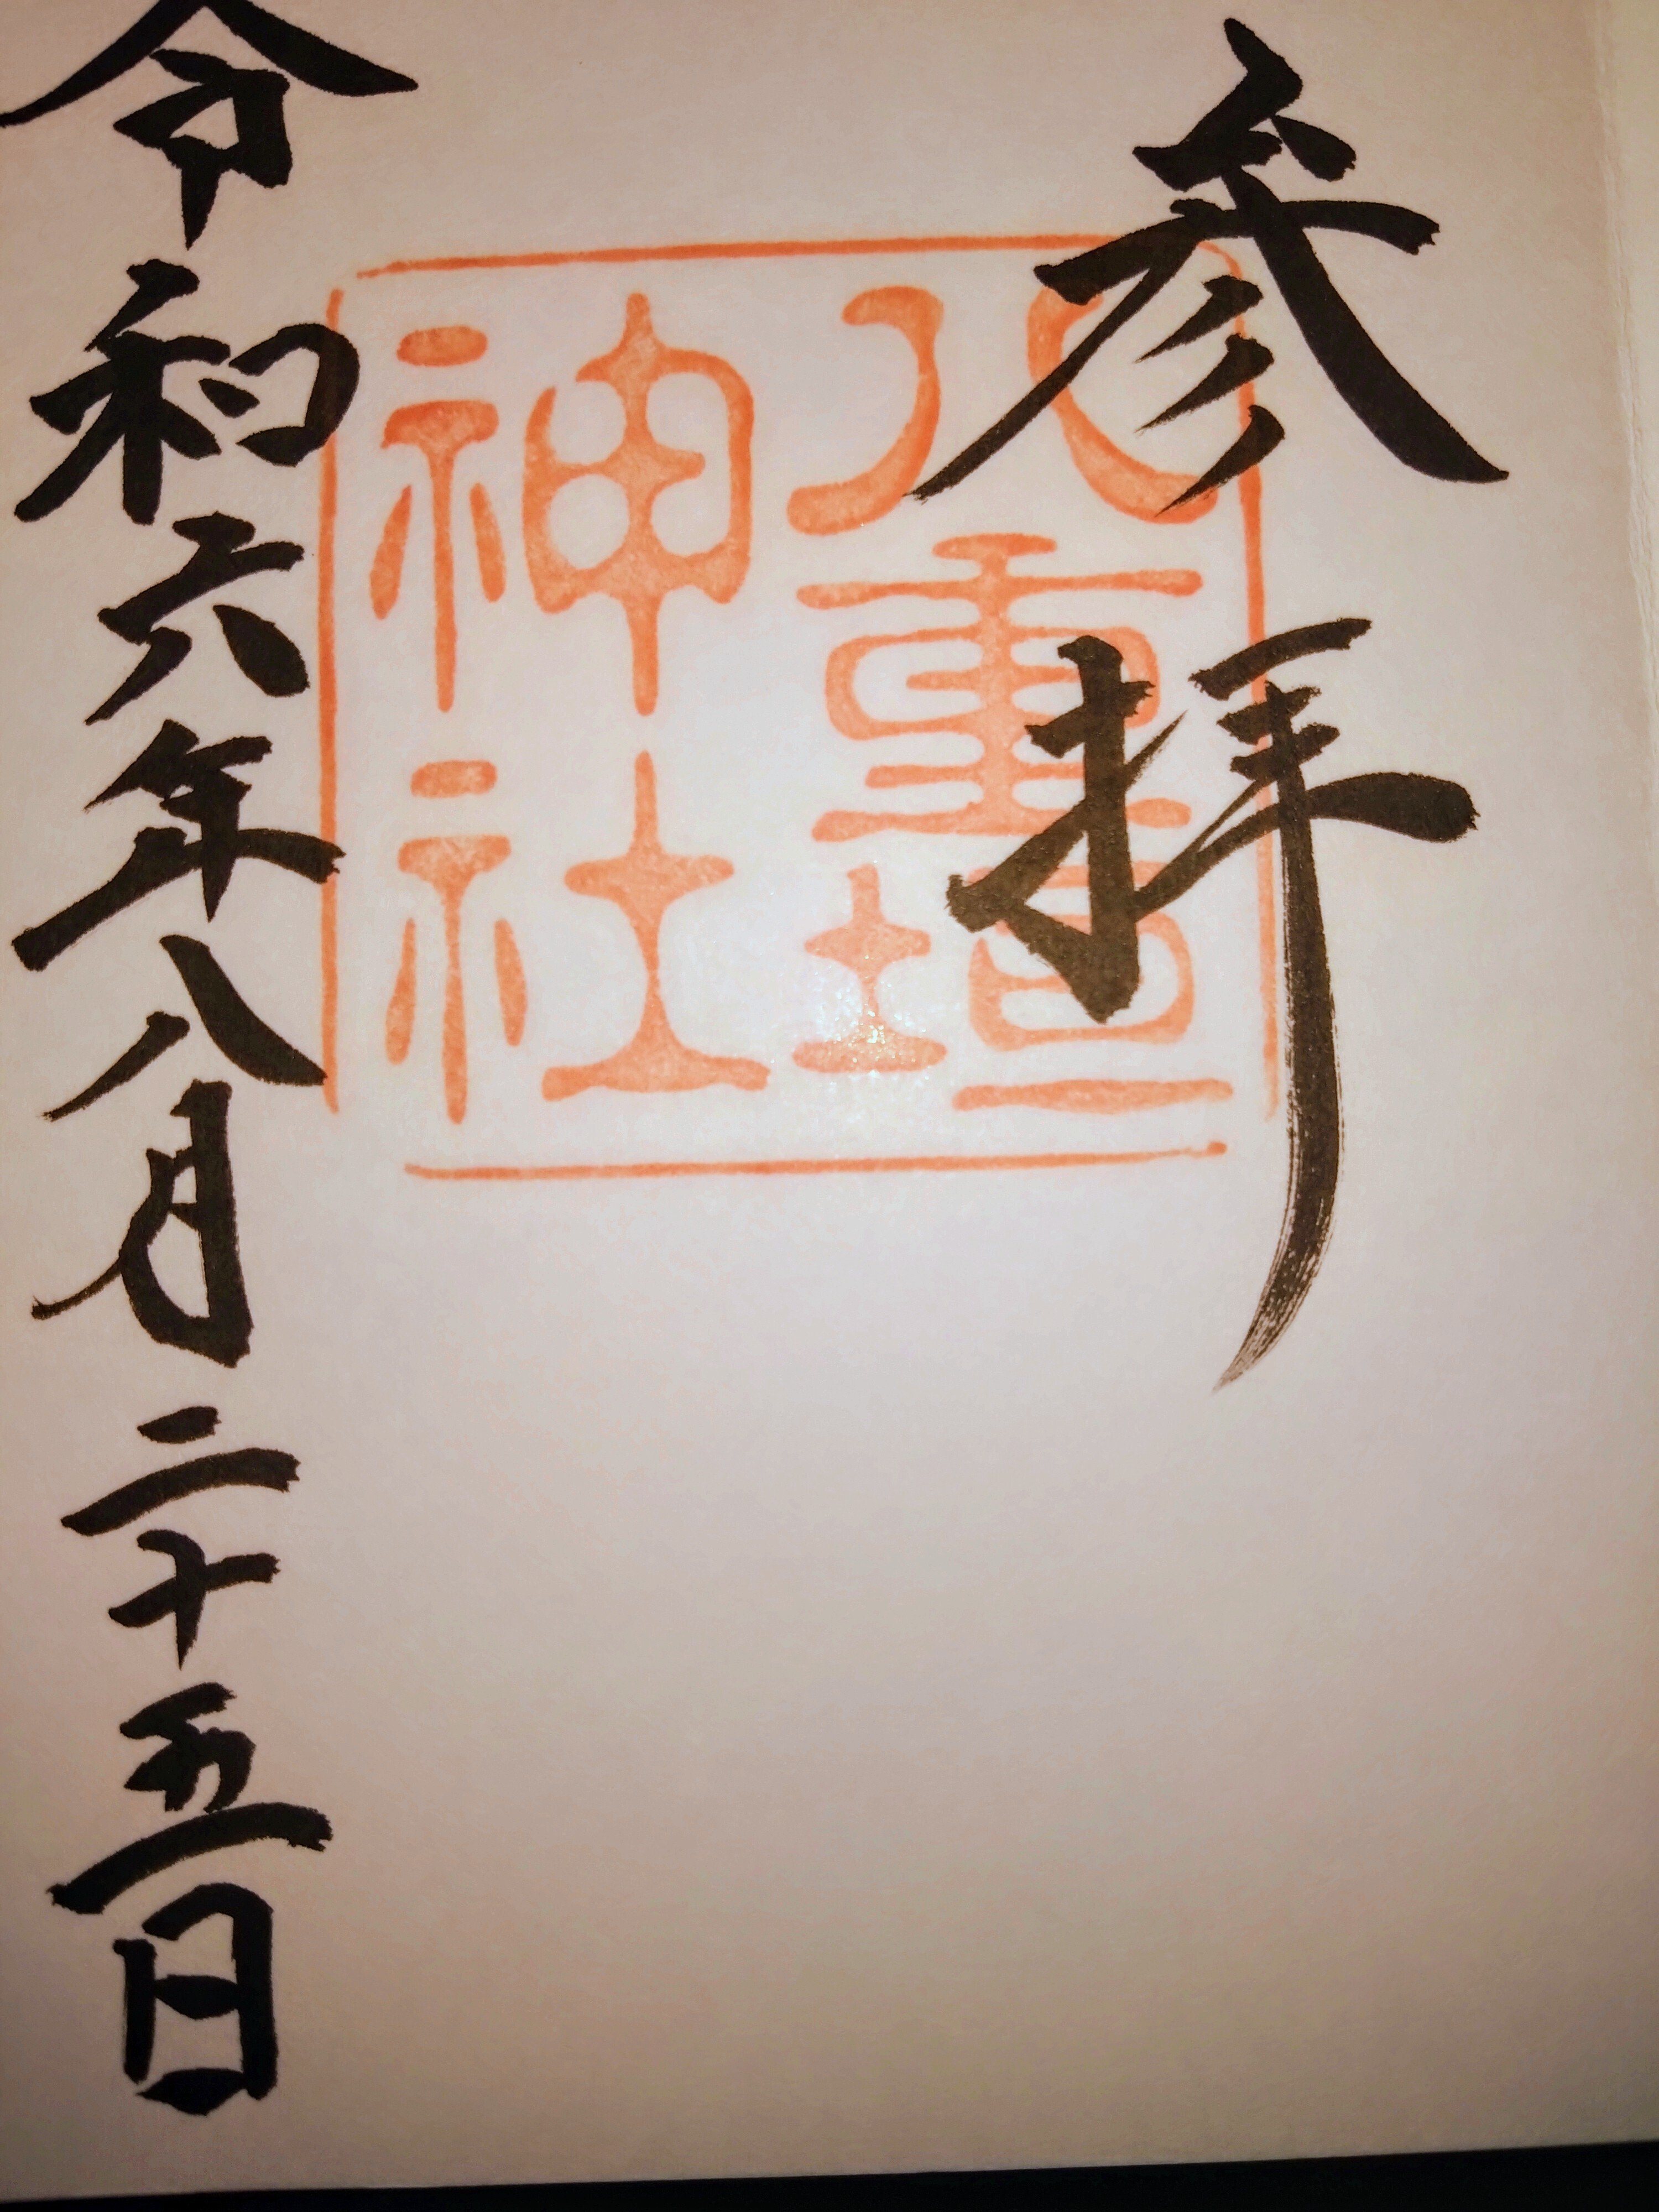 参拝
八重垣
神社
令和六年八月二十五日